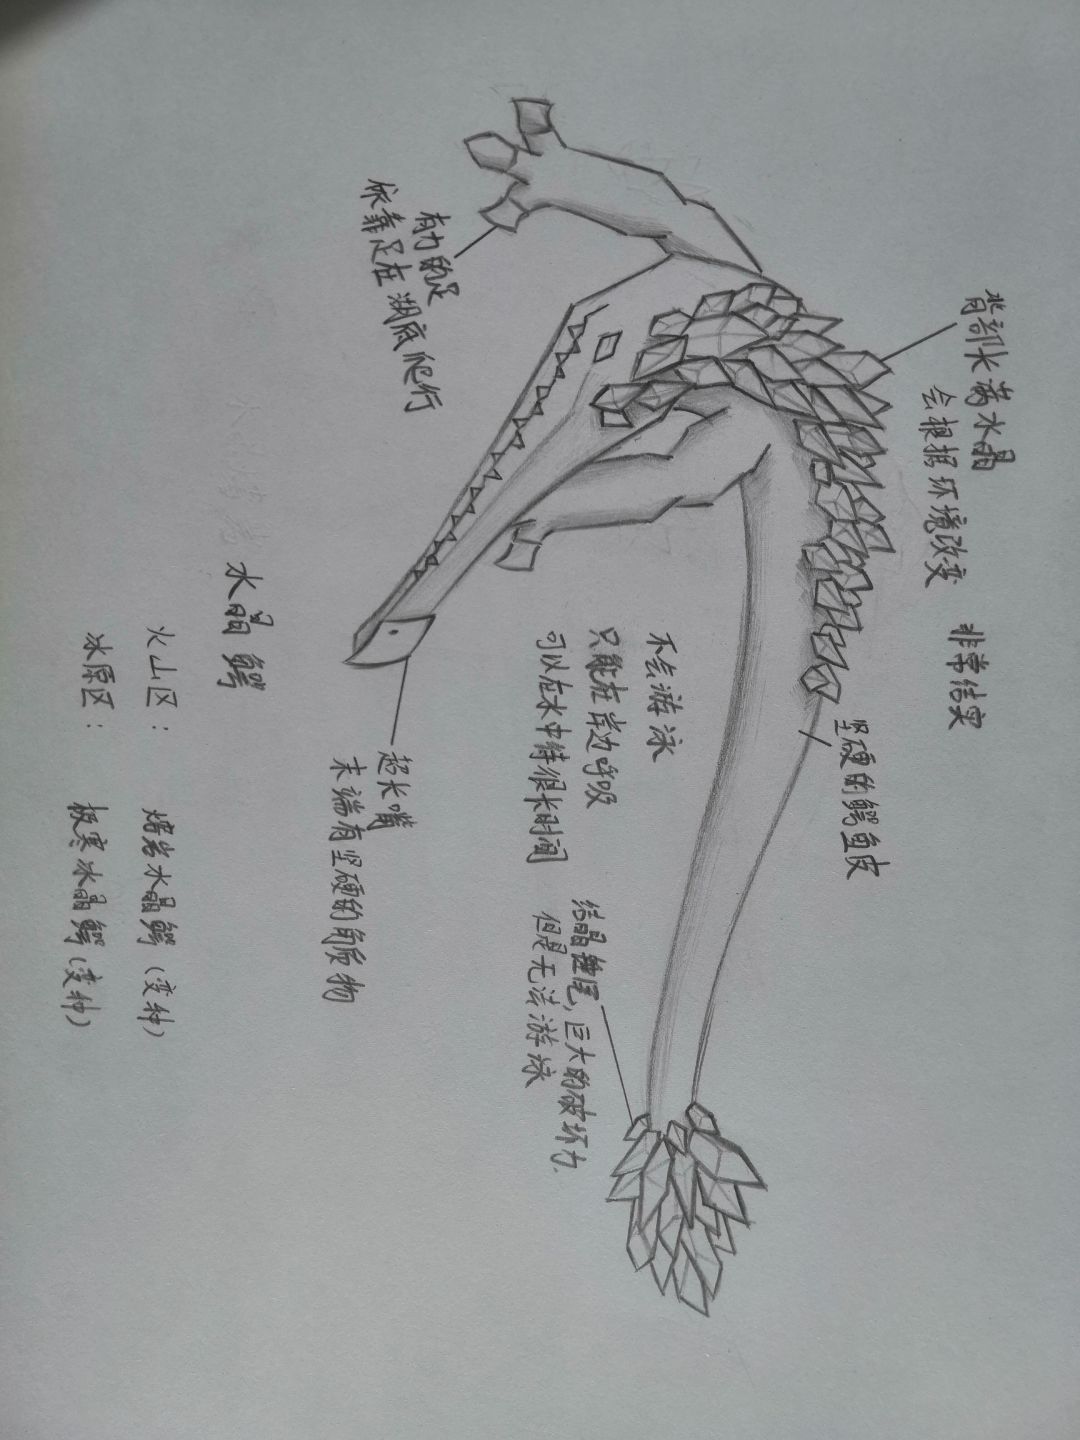 背部长满水晶
会根据环境改变
非常结实
坚硬的鳄鱼皮
有力的足
依靠足在湖底爬行
不会游泳
只能在岸边呼吸
可以在水中待很长时间
结晶锤尾,巨大的破坏力
但是无法游泳
超长嘴
末端有坚硬的角质物
水晶鳄
火山区: 熔岩水晶鳄(变种)
冰原区: 极寒冰晶鳄(变种)